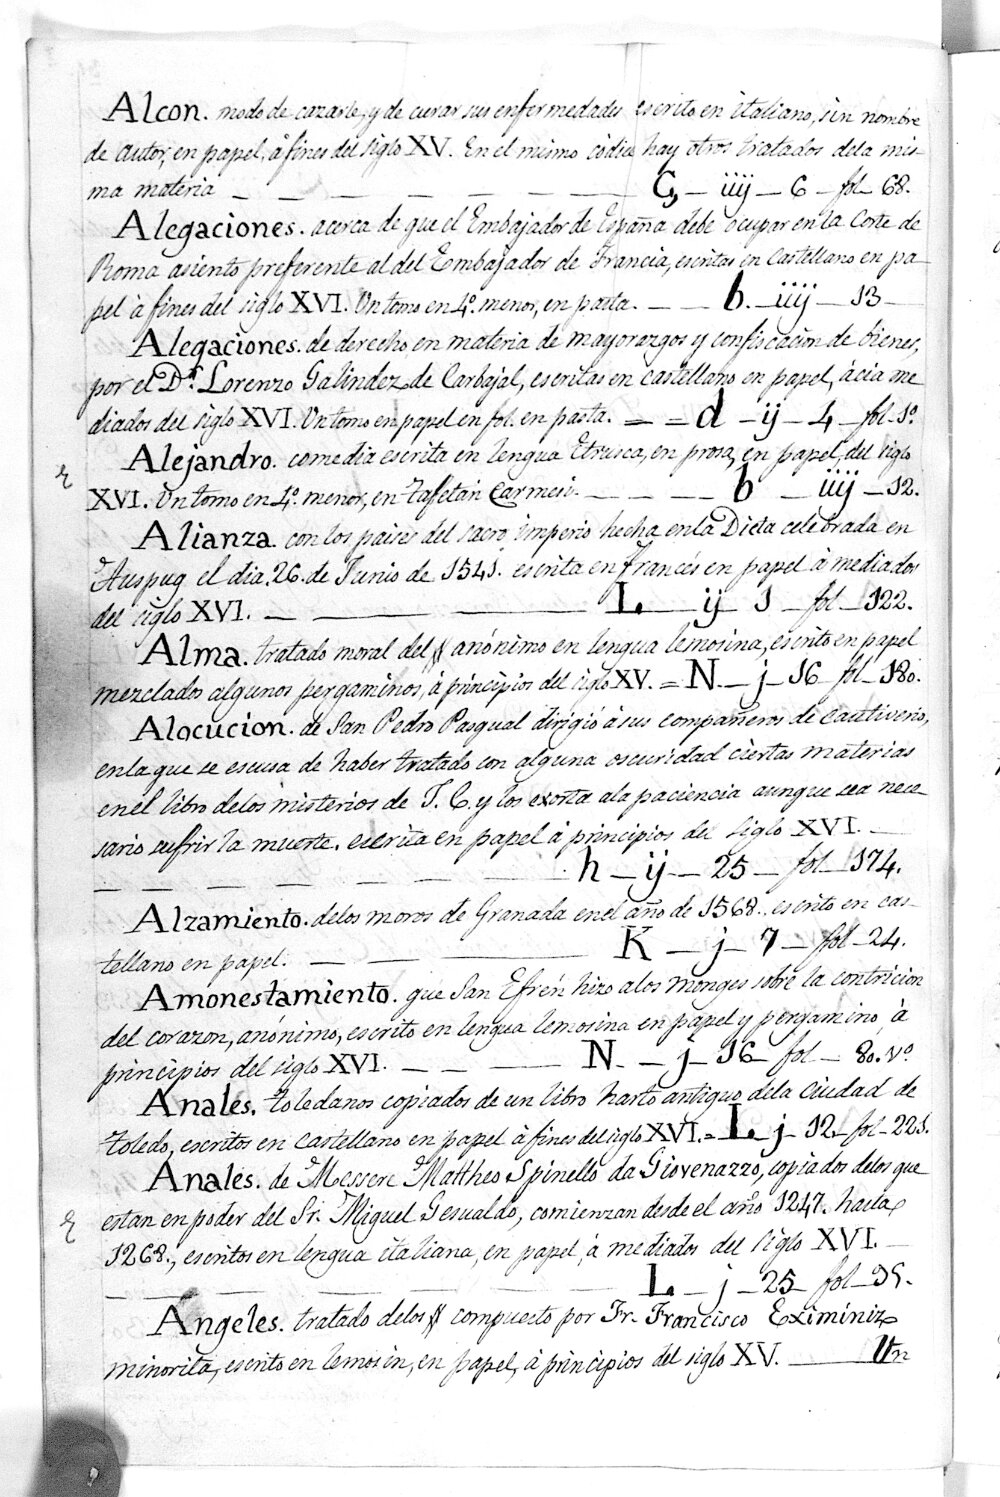 Alcon. modo de cazarle, y de curar sus enfermedades escrito en italiano, sin nombre
de autor, en papel, à fines del siglo XV. En el mismo códice hay otros tratados dela mis-
ma materia — — — — — — — Ç — iiij — 6 — fol — 68.
Alegaciones. acerca de que el Embajador de España debe ocupar en la Corte de
Roma asiento preferente al del Embajador de Francia, escritas en Castellano en pa-
pel à fines del siglo XVI. Un tomo en 4º. menor, en pasta. — — b. — iiij — 13 —
Alegaciones. de derecho en materia de mayorazgos y confiscacion de bienes,
por el Dr. Lorenzo Galindez de Carbajal, escritas en castellano en papel, àcia me
diados del siglo XVI. Un tomo en papel en fol. en pasta. = = d — ij — 4 — fol — 1º.
Alejandro. comedia escrita en lengua Etrusca, en prosa, en papel, del siglo
XVI. Un tomo en 4º. menor, en tafetan Carmesi. — — — — b — iiij — 12.
Alianza. con los paises del sacro imperio hecha en la Dieta celebrada en
Auspug el dia 26. de Junio de 1541. escrita en Francés en papel à mediados
del siglo XVI. — — — — L — ij 1 — fol — 122.
Alma. tratado moral del § anónimo en lengua lemosina, escrito en papel
mezclados algunos pergaminos, à principios del siglo XV. = N. — j — 16 fol — 180.
Alocucion. de San Pedro Pasqual dirigió à sus compañeros de cautiverio,
en la que se escusa de haber tratado con alguna oscuridad ciertas materias
en el libro delos misterios de J. C. y los exorta ala paciencia aunque sea nece-
sario sufrir la muerte. escrita en papel à principios del siglo XVI. —
— — — — — — — — h — ij — 25 — fol — 174.
Alzamiento. delos moros de Granada en el año de 1568. escrito en cas-
tellano en papel. — — — K — j — 7 — fol — 24.
Amonestamiento. que San Efrén hizo alos Monges sobre la contricion
del corazon, anónimo, escrito en lengua lemosina en papel y pergamino, à
principios del siglo XVI. — — — N. — j — 16 — fol — 80. vº.
Anales. toledanos copiados de un libro harto antiguo dela ciudad de
Toledo, escritos en castellano en papel à fines del siglo XVI. = L. j — 12. — fol — 221.
Anales. de Messere Mattheo Spinello da Giovenazzo, copiados delos que
estan en poder del Sr. Miguel Gesualdo, comienzan desde el año 1247. hasta
1268., escritos en lengua italiana, en papel, à mediados del siglo XVI. —
— — — — — — — — L — j — 25 — fol — 95.
Angeles. tratado delos § compuesto por Fr. Francisco Eximiniz
minorita, escrito en lemosin, en papel, à principios del siglo XV. — Un